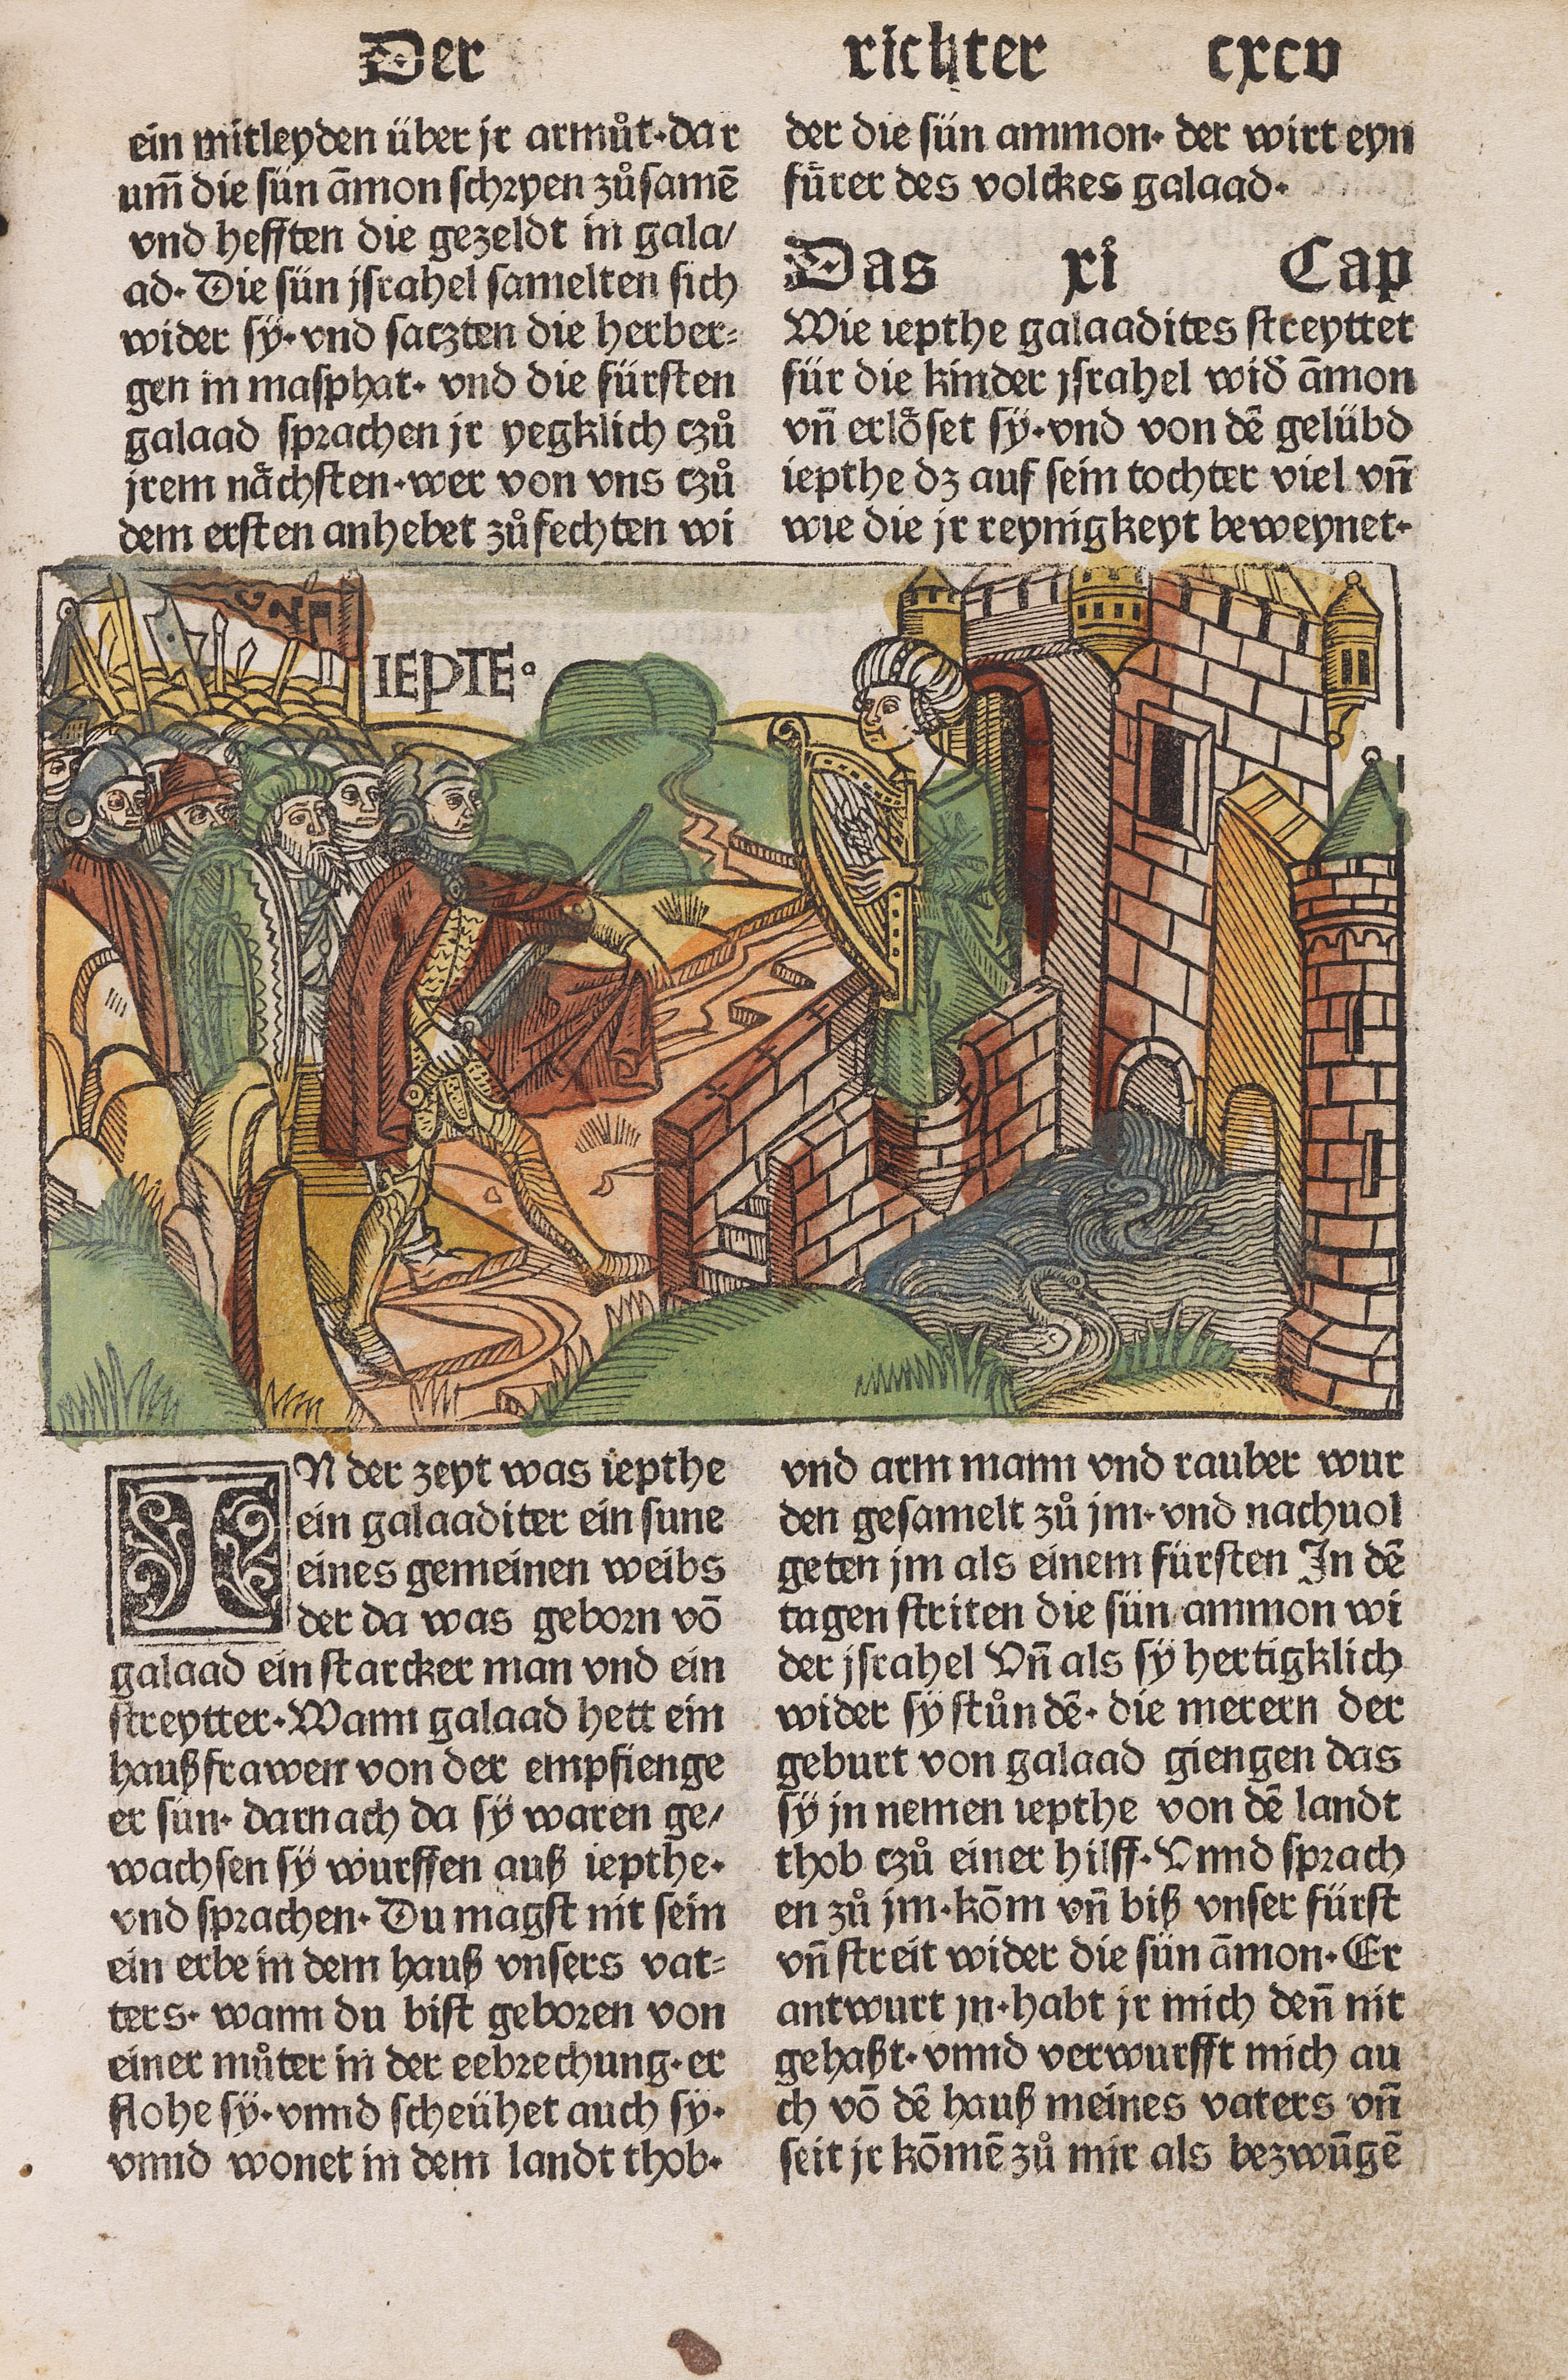 Der richter cxcv
ein mitleyden über jr armůt·dar
um̄ die sün āmon schryen zůsamē
vnd hefften die gezeldt in gala/
ad· Die sün jsrahel samelten sich
wider sÿ·vnd satzten die herber=
gen in masphat· vnd die fürsten
galaad sprachen jr yegklich czů
jrem nächsten·wer von vns czů
dem ersten anhebet zůfechten wi
der die sün ammon· der wirt eyn
fürer des volckes galaad·
Das xi Cap
Wie iepthe galaadites streyttet
für die kinder jsrahel wid̄ āmon
vn̄ erlöset sÿ·vnd von dē gelübd
iepthe dz auf sein tochter viel vn̄
wie die jr reynigkeyt beweynet·
IEPTE°
IN der zeyt was iepthe
ein galaaditer ein sune
eines gemeinen weibs
der da was geborn vō
galaad ein starcker man vnd ein
streytter·Wann galaad hett ein
haußfrawen von der empfienge
er sün· darnach da sÿ waren ge/
wachsen sÿ wurffen auß iepthe·
vnd sprachen· Du magst nit sein
ein erbe in dem hauß vnsers vat=
ters· wann du bist geboren von
einer můter in der eebrechung·er
flohe sÿ·vnnd scheühet auch sy·
vnnd wonet in dem landt thob·
vnd arm mann vnd rauber wur
den gesamelt zů jm·vnd nachuol
geten jm als einem fürsten In dē
tagen striten die sün ammon wi
der jsrahel Vn̄ als sÿ hertigklich
wider sÿ stůndē· die merern der
geburt von galaad giengen das
sÿ jn nemen iepthe von dē landt
thob czů einer hilff·Vnnd sprach
en zů jm·kōm vn̄ biß vnser fürst
vn̄ streit wider die sün āmon·Er
antwurt jn·habt jr mich den̄ nit
gehaßt·vnnd verwurfft mich au
ch vō dē hauß meines vaters vn̄
seit jr kōmē zů mir als bezwūgē